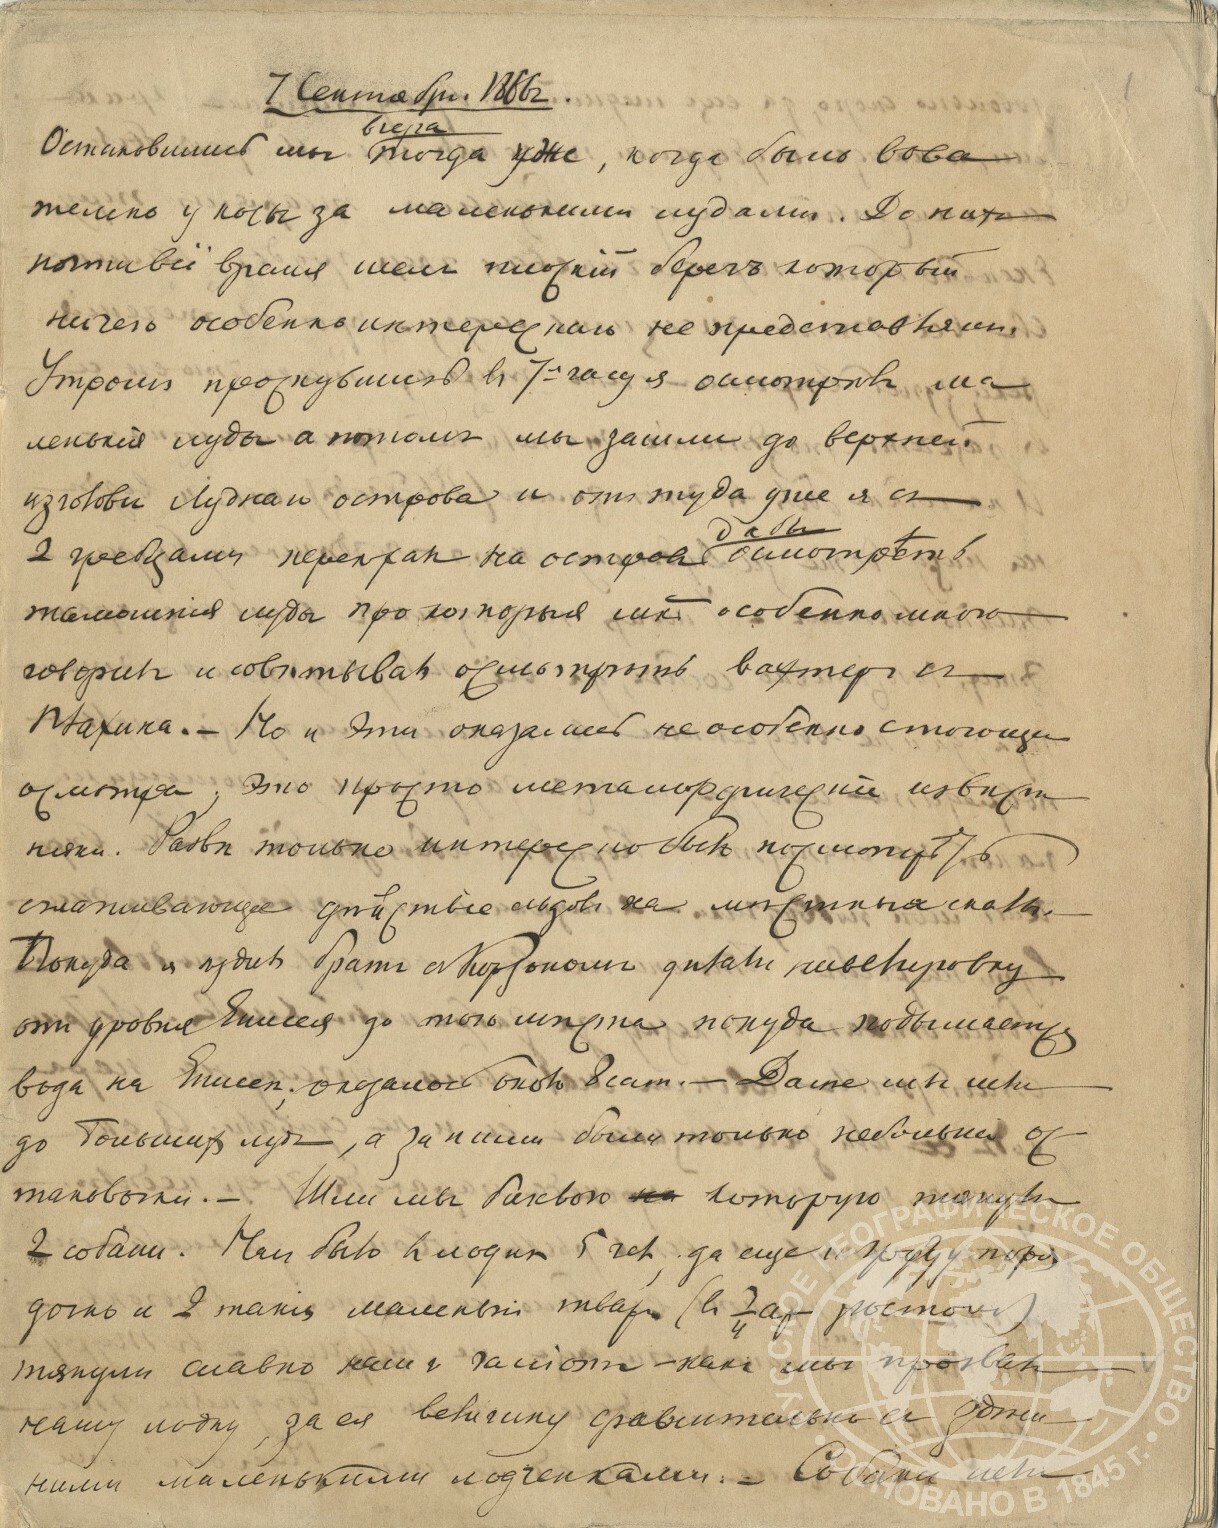 7 Сентября. 1866г.
вчера
Остановились мы тогда уже, когда было
у косы за маленькими лудами. До
почти всё время шел плоский берегъ который
ничего особенно интереснаго не представлялъ.
Утромъ проснувшись въ 7-ъ часу я осмотрѣлъ ма
ленькія луды а потомъ мы зашли до верхней
изголови острова и отъ туда уже я съ
дабы
2 гребцами переѣхал на остров осмотрѣть
тамошнія луды про которыя мнѣ особенно много
говорилъ и совѣтывалъ осмотрѣть вахтеръ съ
Но и эти оказались не особенно стоющими
осмотра; это просто метаморфическій извест
няки. Развѣ только интересно было посмотрѣть
сглаживающее дѣйствіе льдовъ на мѣстныя скалы.
Покуда я ѣздилъ братъ съ дѣлали нивеллировку
отъ уровня Енисея до того мѣста покуда подымается
вода на Енисеѣ, оказалось около 8 саж. — Далѣе мы шли
до Большихъ лудъ, а за ними были только небольшія ос
тановочки. — Шли мы бичевою на которую тянули
2 собаки. Насъ было въ лодкѣ 5 чел, да еще и грузу поря
дочно и 2 такія маленькія твари (въ 3/4 ар ростомъ)
тянули славно нашъ галіотъ — какъ мы прозвали
нашу лодку, за ея величину сравнительно съ здѣш
ними маленькими лодченками. — Собаки шли
РУССКОЕ ГЕОГРАФИЧЕСКОЕ ОБЩЕСТВО
ОСНОВАНО В 1845 г.